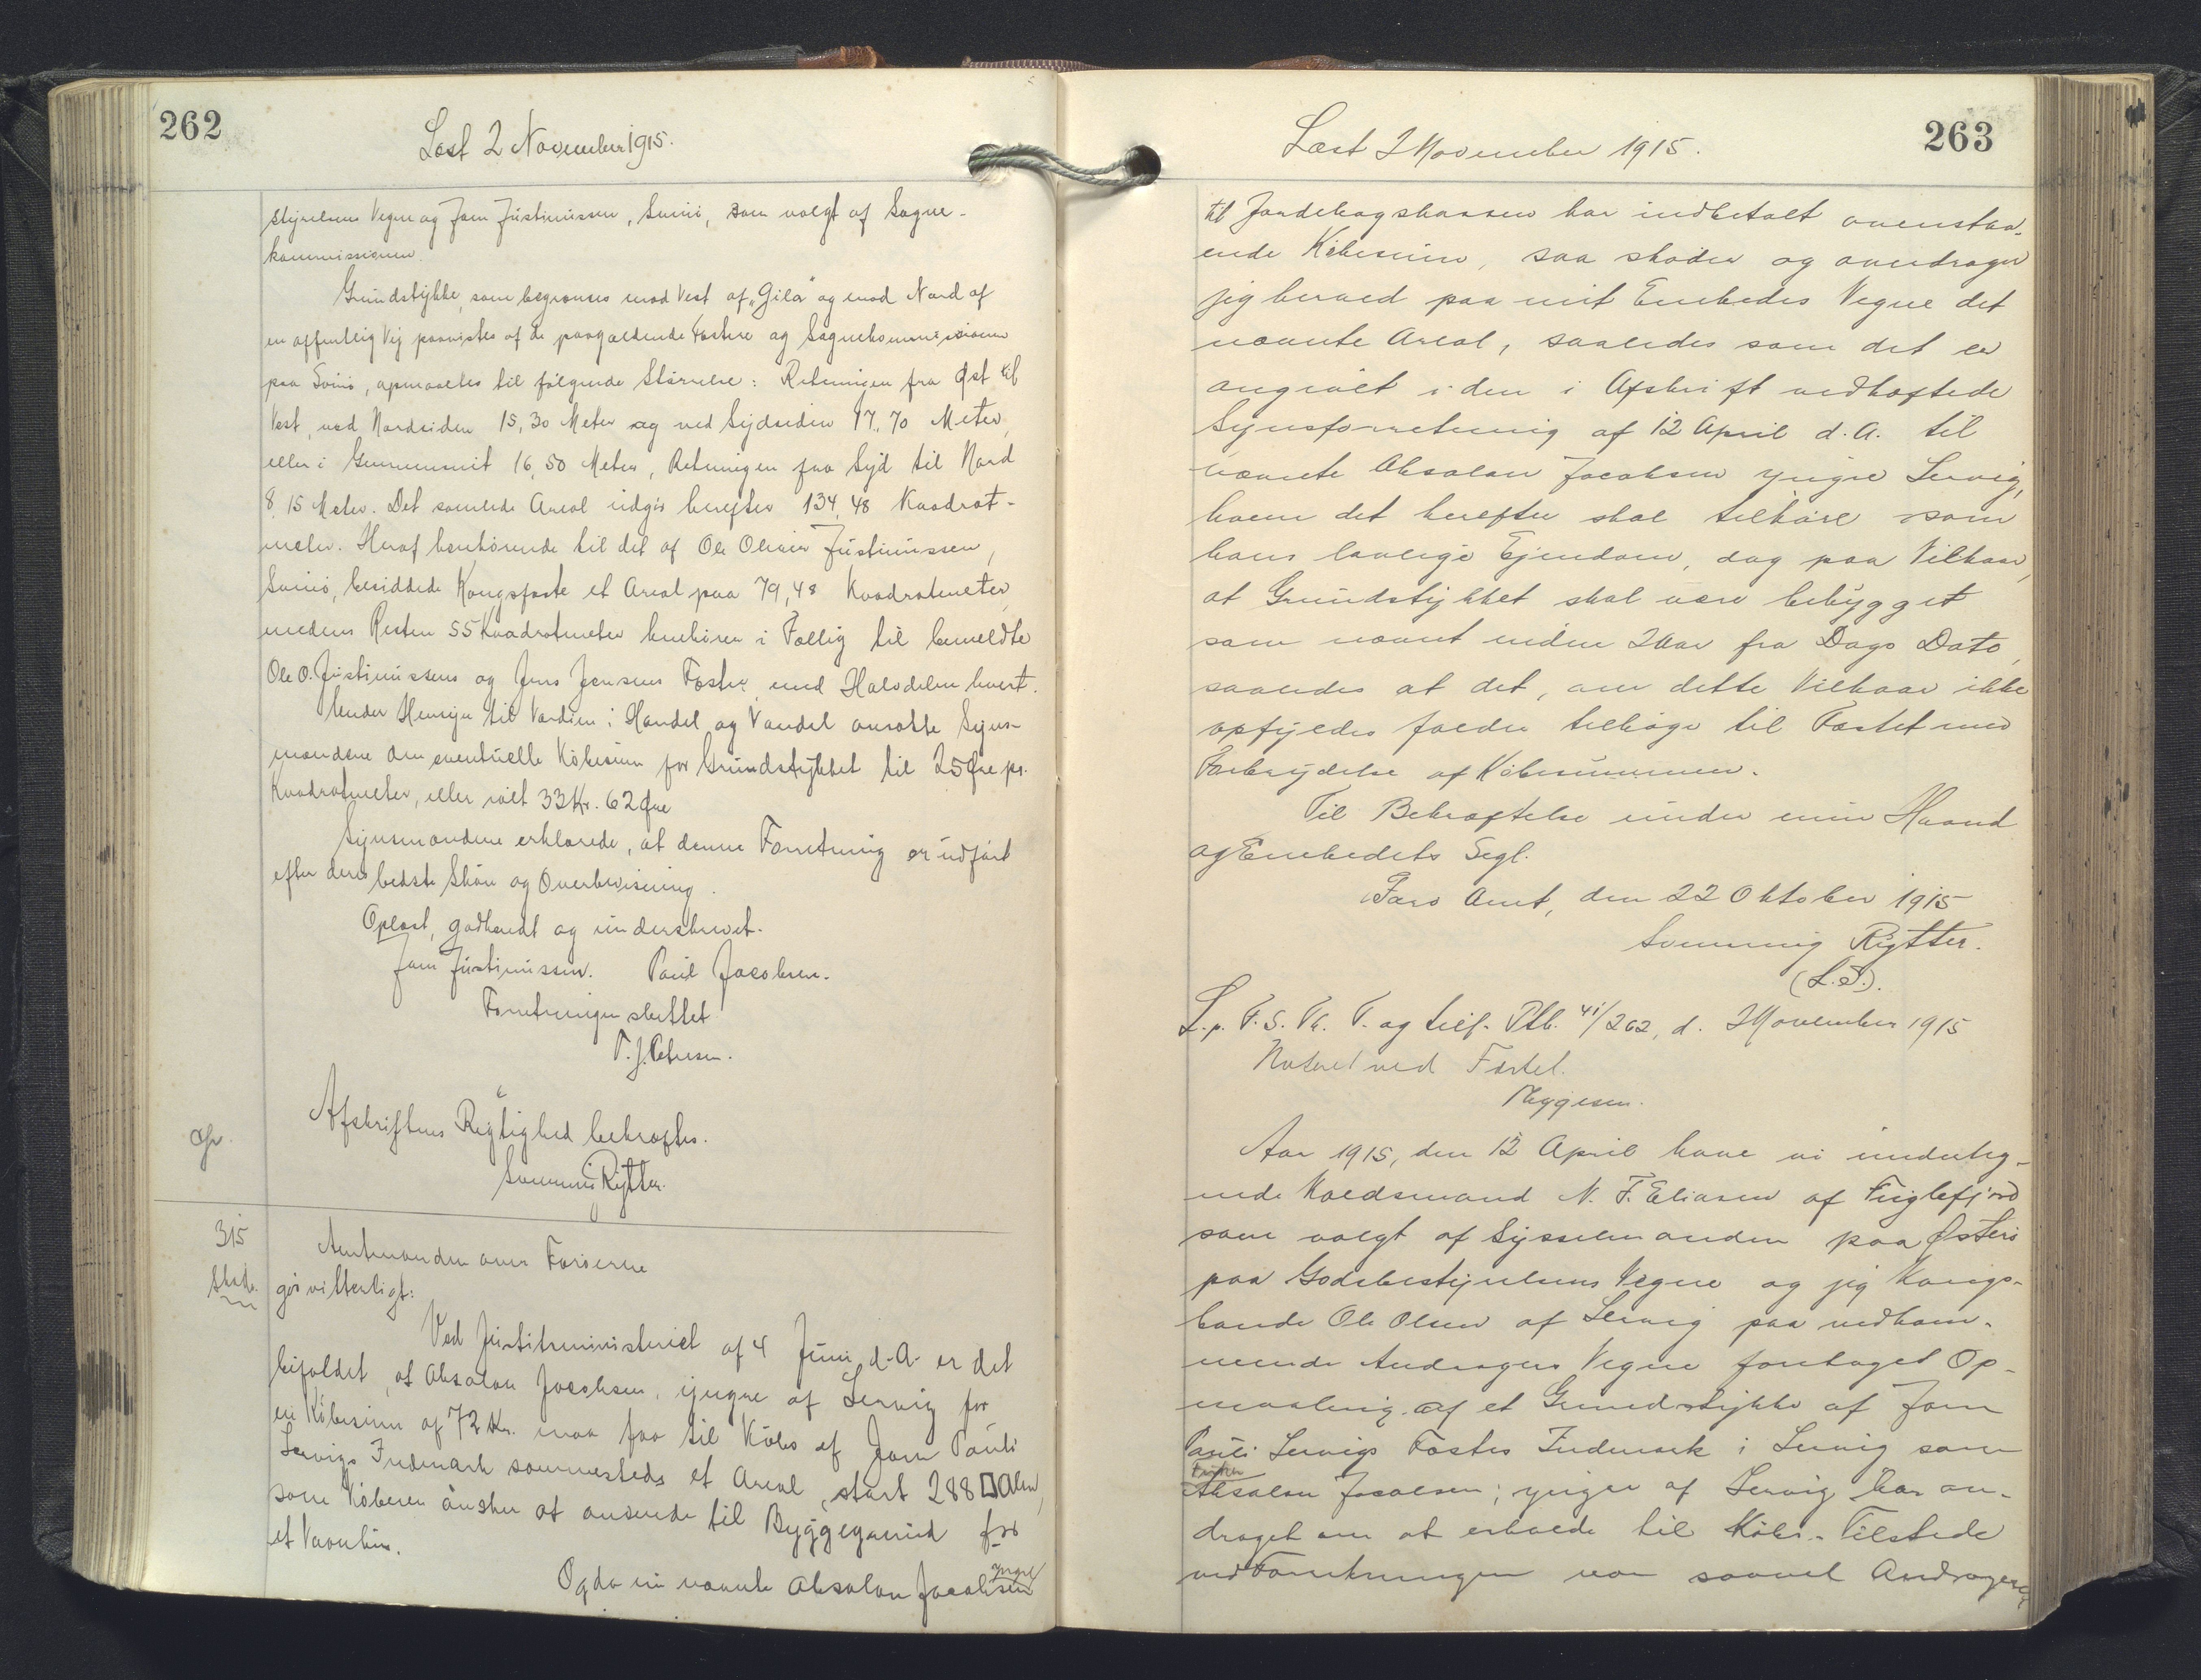 262
Læst 2 November 1915.
styrelsens Vegne og Joen Justinussen, Svinø, som valgt af Sogne-
kommissionen.
Grundstykke, som begrænses mod Vest af "Gila" og mod Nord af
en offentlig Vej paavistes af de paagældende Fæstere og Sognekommissionen
paa Svinø, opmaaltes til følgende Størrelse: Retningen fra Øst til
Vest, ved Nordsiden 15,30 Meter og ved Sydsiden 17,70 Meter,
eller i Gennemsnit 16,50 Meter, Retningen fra Syd til Nord
8,15 Meter. Det samlede Areal udgør herefter 134,48 Kvadrat-
meter. Heraf henhørende til det af Ole Olivur Justinussen,
Svinø, besiddede Kongsfæste et Areal paa 79,48 Kvadratmeter,
medens Resten 55 Kvadratmeter henhører i Fællig til bemeldte
Ole O. Justinussens og Jens Jensens Fæster med Halvdelen hvert.
Under Hensyn til Værdien i Handel og Vandel ansatte Syns-
mændene den eventuelle Købesum for Grundstykket til 25 Øre pr.
Kvadratmeter, eller ialt 33 Kr. 62 Øre
Synsmændene erklærede, at denne Forretning er udført
efter deres bedste Skøn og Overbevisning.
Oplæst, godkendt og underskrevet.
Joen Justinussen. Poul Jacobsen.
Forretningen sluttet
P. J. Petersen.
Afskriftens Rigtighed bekræftes.
Svenning Rytter.
315
Skøde
Amtmanden over Færøerne
gør vitterligt:
Ved Justitsministeriet af 4 Juni d.A. er det
bifaldet, at Absalon Jacobsen, yngre af Lervig for
en Købesum af 72 Kr. maa faa til Købs af Joen Pauli
Lervigs Indmark sammesteds et Areal, stort 288 □ Alen,
som Køberen ønsker at anvende til Byggegrund for
et Vaanhus.
Og da nu nævnte Absalon Jacobsen
yngre
263
Læst 2 November 1915.
til Jordebogskassen har indbetalt ovenstaa-
ende Købesum, saa skøder og overdrager
jeg herved paa mit Embedes Vegne det
nævnte Areal, saaledes som det er
angivet i den i Afskrift vedhæftede
Synsforretning af 12 April d.A. til
nævnte Absalon Jacobsen yngre Lervig,
hvem det herefter skal tilhøre som
hans lovlige Ejendom, dog paa Vilkaar,
at Grundstykket skal være bebygget
som nævnt inden 2 Aar fra Dags Dato,
saaledes at det, om dette Vilkaar ikke
opfyldes falder tilbage til Fæstet med
Forbrydelse af Købesummen.
Til Bekræftelse under min Haand
og Embedets Segl.
Færø Amt, den 22 Oktober 1915
Svenning Rytter.
(L.S.).
L. p. F. S. Th. T. og tilf. Ptb. 41/262, d. 2 November 1915
Noteret ved Fæstet.
Myggesen.
Aar 1915, den 12 April have vi underteg-
nede Voldsmand N. F. Eliasen af Fuglefjord
som valgt af Sysselmanden paa Østerø
paa Godsbestyrelsens Vegne og jeg Kongs-
bonde Ole Olsen af Lervig paa vedkom-
mende Andragers Vegne foretaget Op-
maaling af et Grundstykke af Joen
Pauli Lervigs Fæstes Indmark i Lervig som
Absalon Jacobsen, yngre af Lervig har an-
draget om at erholde til Købs. Tilstede
ved Forretningen var saavel Andrageren